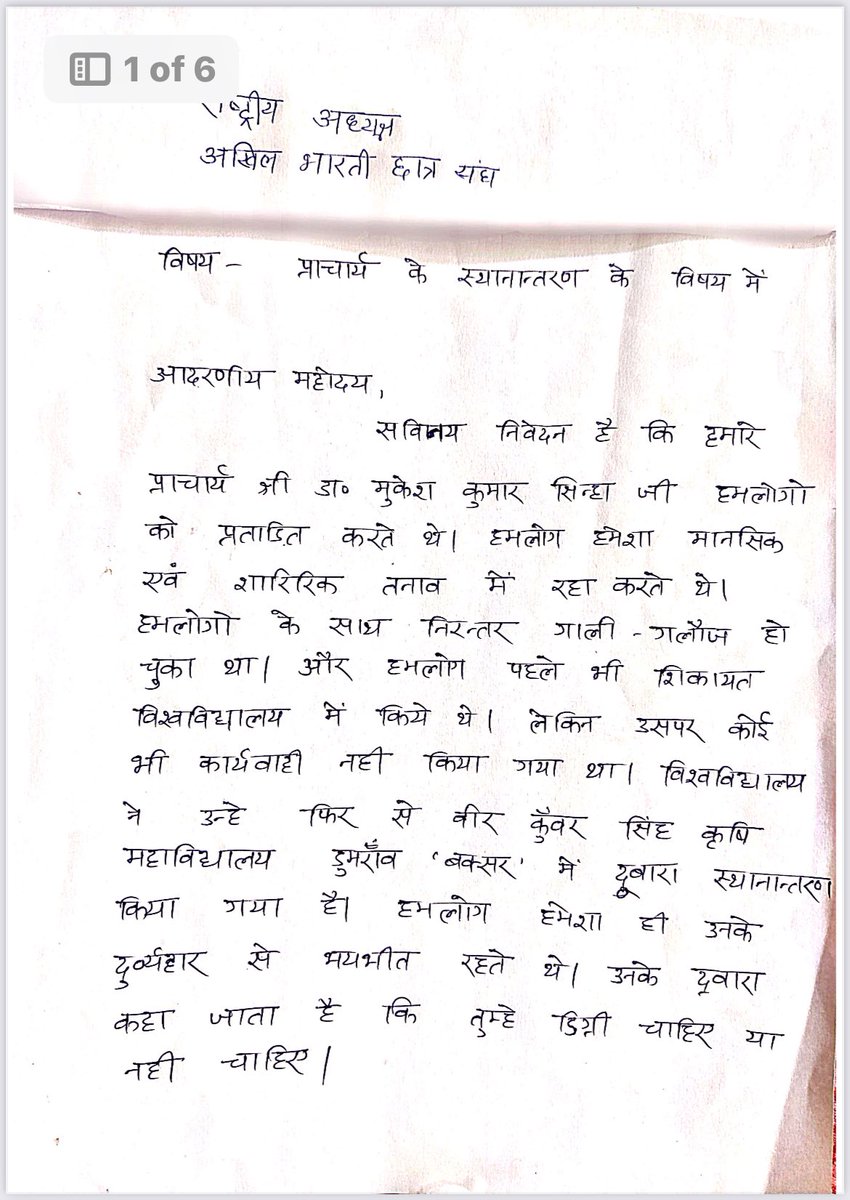 1 of 6
राष्ट्रीय अध्यक्ष
अखिल भारती छात्र संघ
विषय - प्राचार्य के स्थानान्तरण के विषय में
आदरणीय महोदय,
सविनय निवेदन है कि हमारे
प्राचार्य श्री डा० मुकेश कुमार सिन्हा जी हमलोगो
को प्रताडित करते थे। हमलोग हमेशा मानसिक
एवं शारिरिक तनाव में रहा करते थे।
हमलोगो के साथ निरन्तर गाली-गलौज हो
चुका था। और हमलोग पहले भी शिकायत
विश्वविद्यालय में किये थे। लेकिन उसपर कोई
भी कार्यवाही नही किया गया था। विश्वविद्यालय
ने उन्हे फिर से वीर कुँवर सिंह कृषि
महाविद्यालय डुमराँव 'बक्सर' में दूबारा स्थानान्तरण
किया गया है। हमलोग हमेशा ही उनके
दुर्व्यहार से भयभीत रहते थे। उनके द्वारा
कहा जाता है कि तुम्हे डिग्री चाहिए या
नही चाहिए।